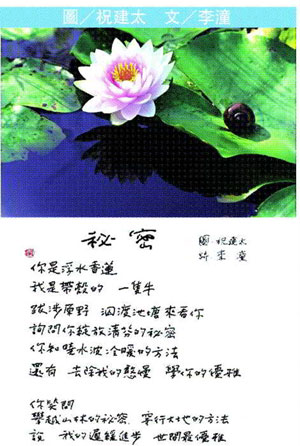 圖╱祝建太 文╱李潼
祕密
圖 祝建太
詩 李潼
你是浮水香蓮
我是帶殼的 一隻牛
跋涉原野 泅渡池塘來看你
詢問你綻放清芬的祕密
你知曉水波冷暖的方法
還有 去除我的憨慢 學你的優雅
你笑問
攀越山林的祕密 穿行大地的方法
說 我的遲緩進步 世間最優雅